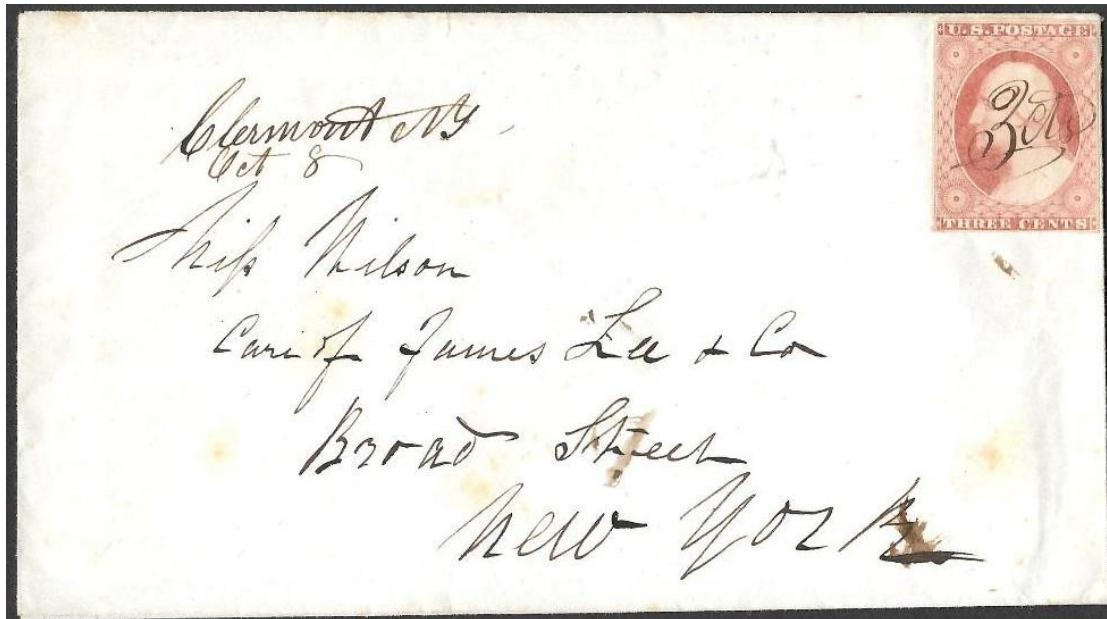 U.S. POSTAGE
3 cts
THREE CENTS
Clermont NY
Oct 8
Miss Wilson
Care of James Lee & Co
Broad Street
New York